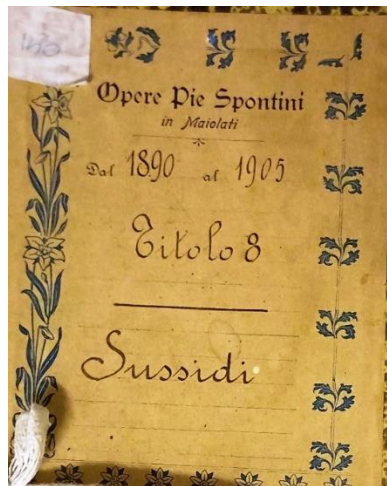 Opere Pie Spontini
in Maiolati
Dal 1890 al 1905
Titolo 8
Sussidi